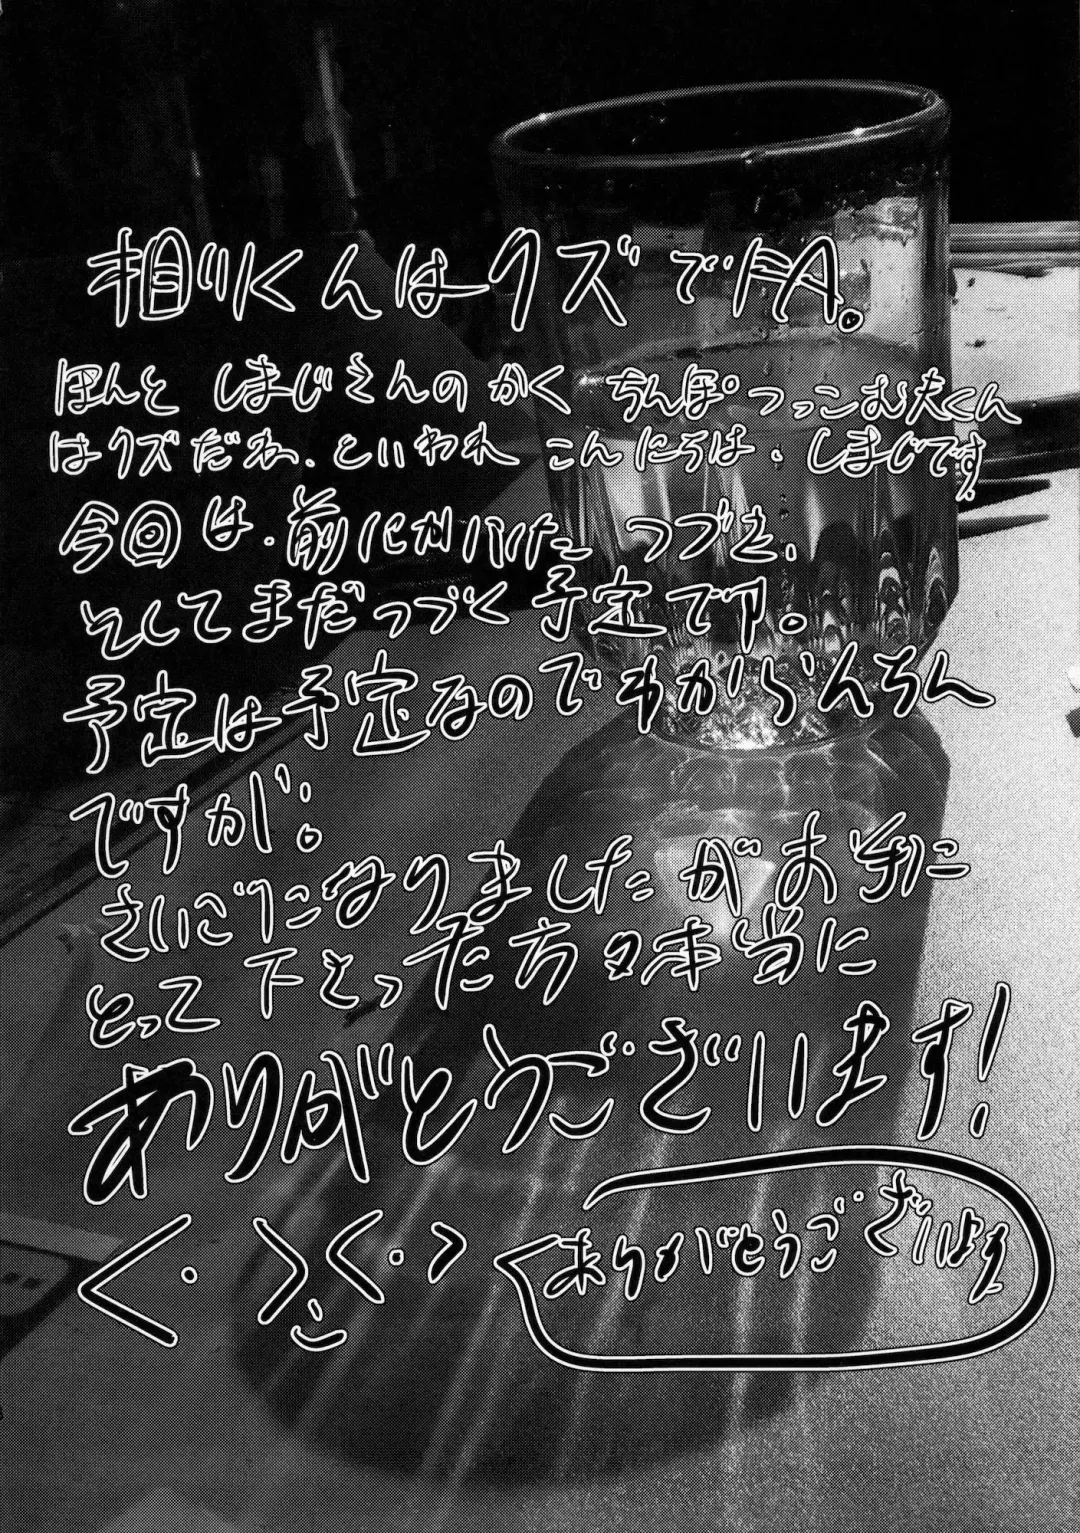 相川くんはクズでFA。
ほんと しまじさんの かく ちんぽつっこむ夫くん
はクズだね、といわれ こんにちは、しまじです
今回は、前にかいた つづき、
そしてまだつづく予定です。
予定は予定なのでわからんちん
ですが。
さいごになりましたがお手に
とって下さった方々本当に
ありがとうございます!
ありがとうございます